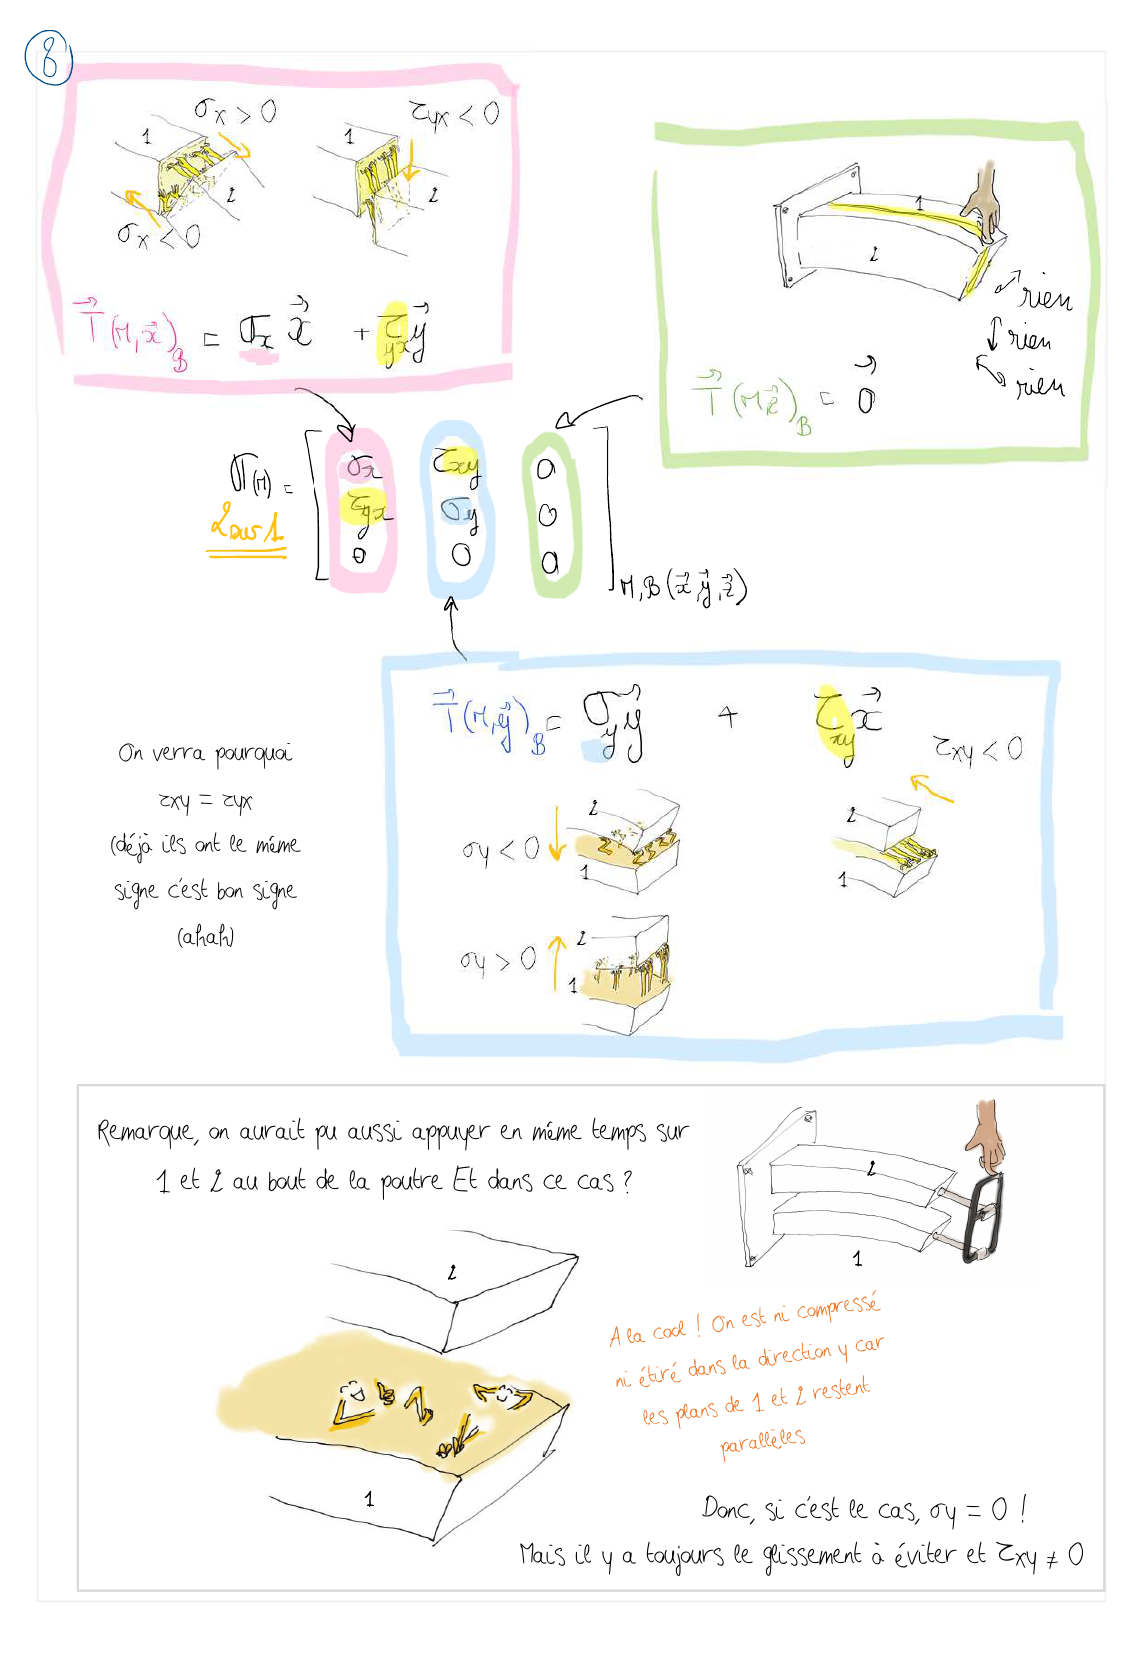 8
σx > 0
τyx < 0
1
1
2
2
σx < 0
T⃗(M,x⃗)B = σx x⃗ + τyx y⃗
1
2
rien
rien
rien
T⃗(M,z⃗)B = 0⃗
σ(M) =
2 sur 1
σx τxy 0
τyx σy 0
0 0 0
M, B(x⃗,y⃗,z⃗)
T⃗(M,y⃗)B = σy y⃗ + τxy x⃗
τxy < 0
On verra pourquoi
τxy = τyx
(déjà ils ont le même
signe c'est bon signe
(ahah)
σy < 0
2
1
2
1
σy > 0
2
1
Remarque, on aurait pu aussi appuyer en même temps sur
1 et 2 au bout de la poutre Et dans ce cas ?
2
1
2
1
A la cool ! On est ni compressé
ni étiré dans la direction y car
les plans de 1 et 2 restent
parallèles
Donc, si c'est le cas, σy = 0 !
Mais il y a toujours le glissement à éviter et τxy ≠ 0